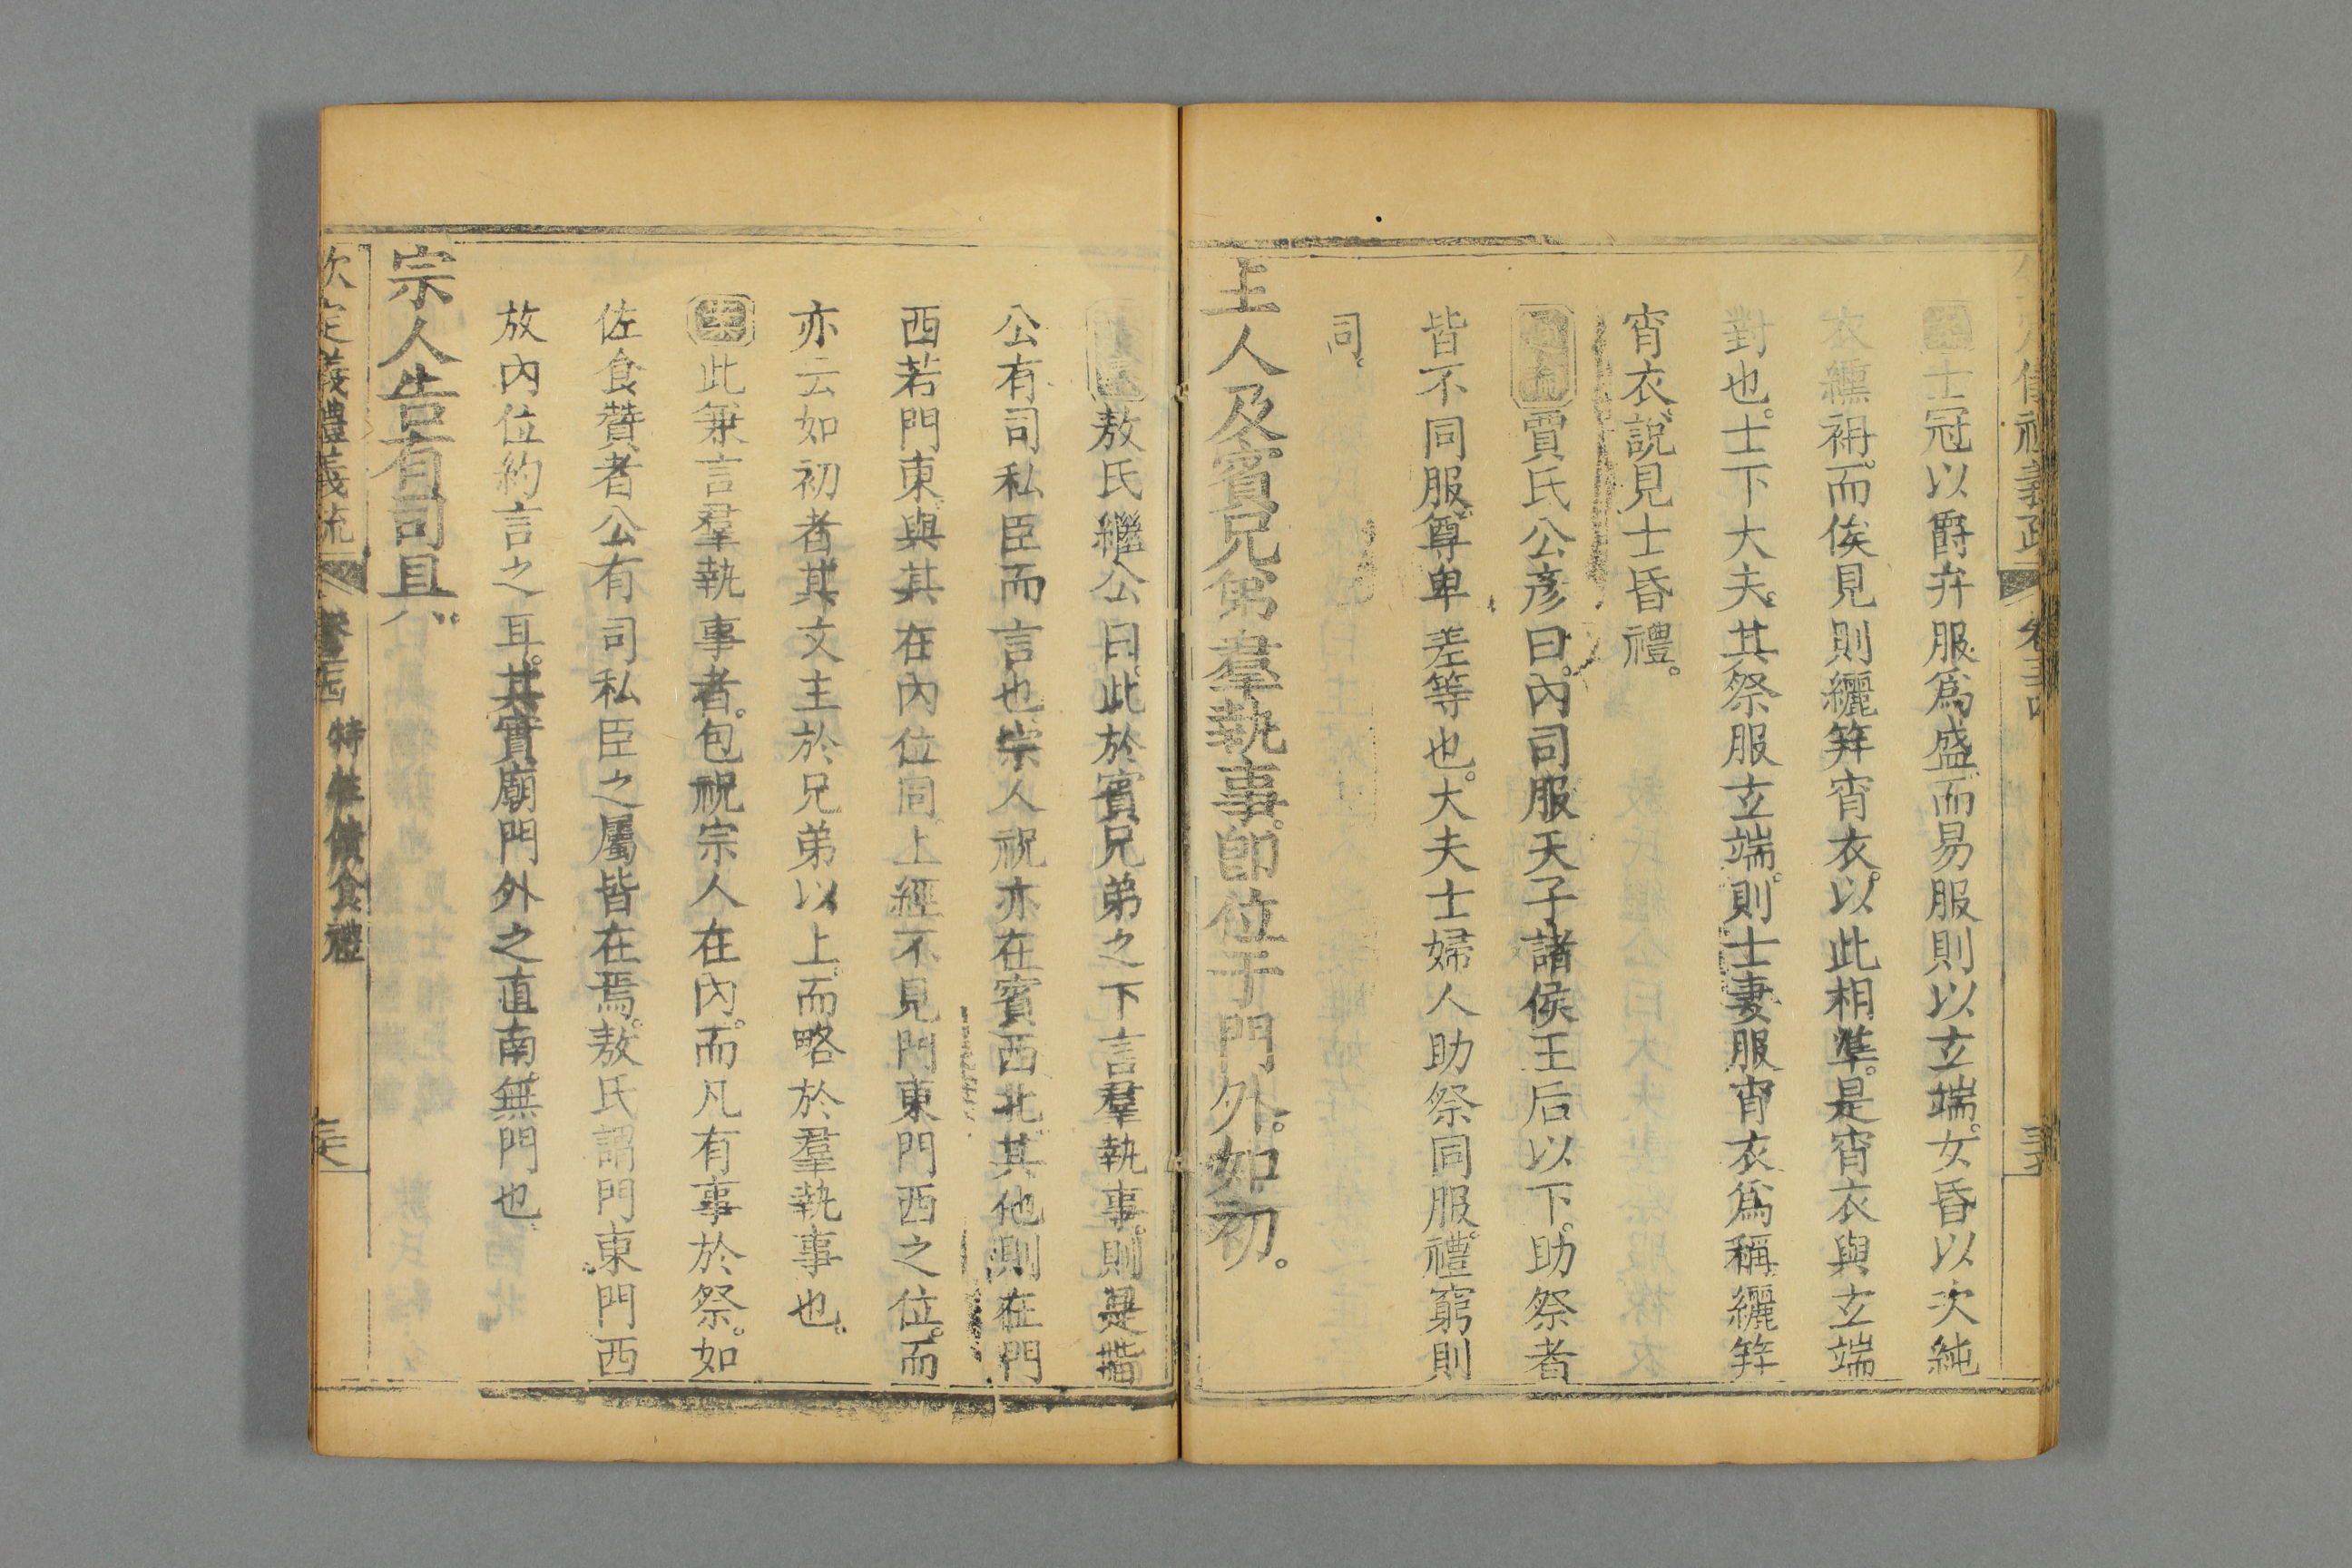 士冠以爵弁服爲盛而易服則以玄端女昏以次純
衣纁袡而俟見則纚笄宵衣以此相準是宵衣與玄端
對也士下大夫其祭服玄端則士妻服宵衣爲稱纚笄
宵衣說見士昏禮
賈氏公彦曰內司服天子諸侯王后以下助祭者
皆不同服尊卑差等也大夫士婦人助祭同服禮窮則
同
主人及賓兄弟羣執事即位于門外如初
敖氏繼公曰此於賓兄弟之下言羣執事則是
公有司私臣而言也宗人祝亦在賓西北其他則在門
西若門東與其在內位同上經不見門東門西之位而
亦云如初者其文主於兄弟以上而略於羣執事也
此兼言羣執事者包祝宗人在內而凡有事於祭如
佐食贊者公有司私臣之屬皆在焉敖氏謂門東門西
放內位約言之耳其實廟門外之直南無門也
宗人告有司具
欽定儀禮義疏 特牲饋食禮